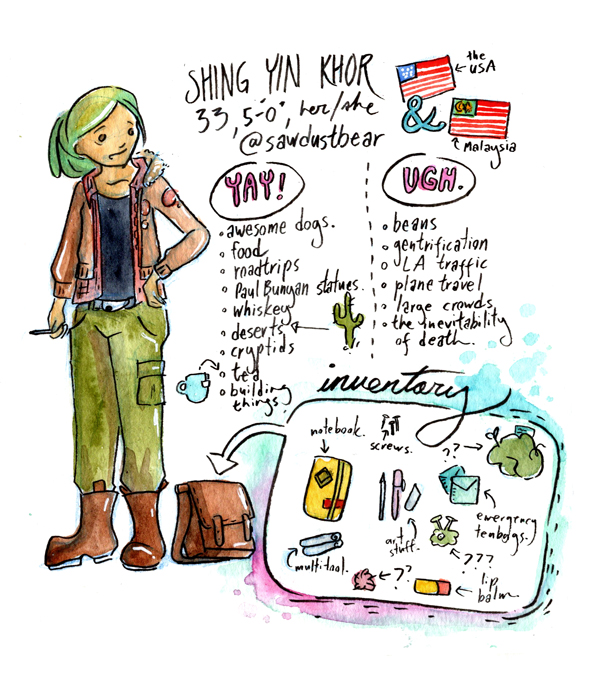 SHING YIN KHOR
33, 5'-0", her/she
@sawdustbear
the
USA
&
Malaysia
YAY!
awesome dogs.
food
roadtrips
Paul Bunyan statues.
whiskey
deserts
cryptids
tea
building
things
UGH.
beans
gentrification
LA traffic
plane travel
large crowds
the inevitability
of death.
inventory
notebook.
screws.
??
emergency
teabags.
art
stuff.
???
multitool.
??
lip
balm.